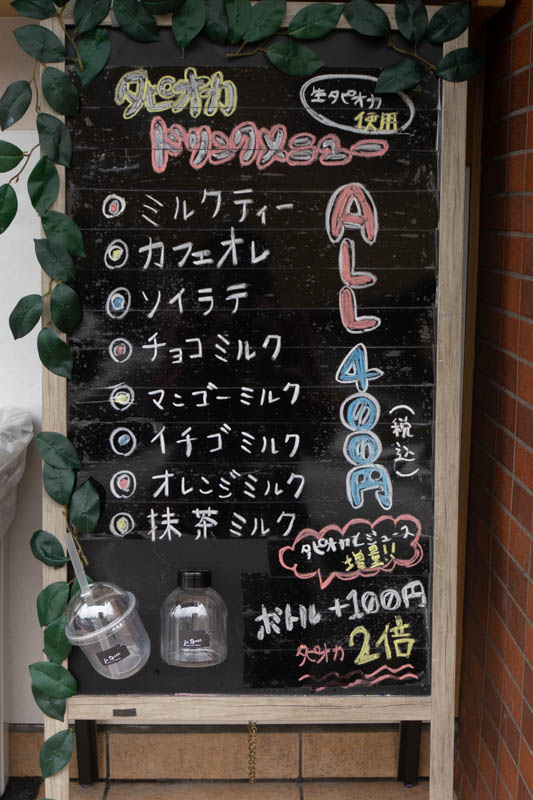 タピオカ
生タピオカ
使用
ドリンクメニュー
ミルクティー
カフェオレ
ソイラテ
チョコミルク
マンゴーミルク
イチゴミルク
オレンジミルク
抹茶ミルク
ALL 400円
(税込)
タピオカとジュース
増量!!
ボトル +100円
タピオカ 2倍